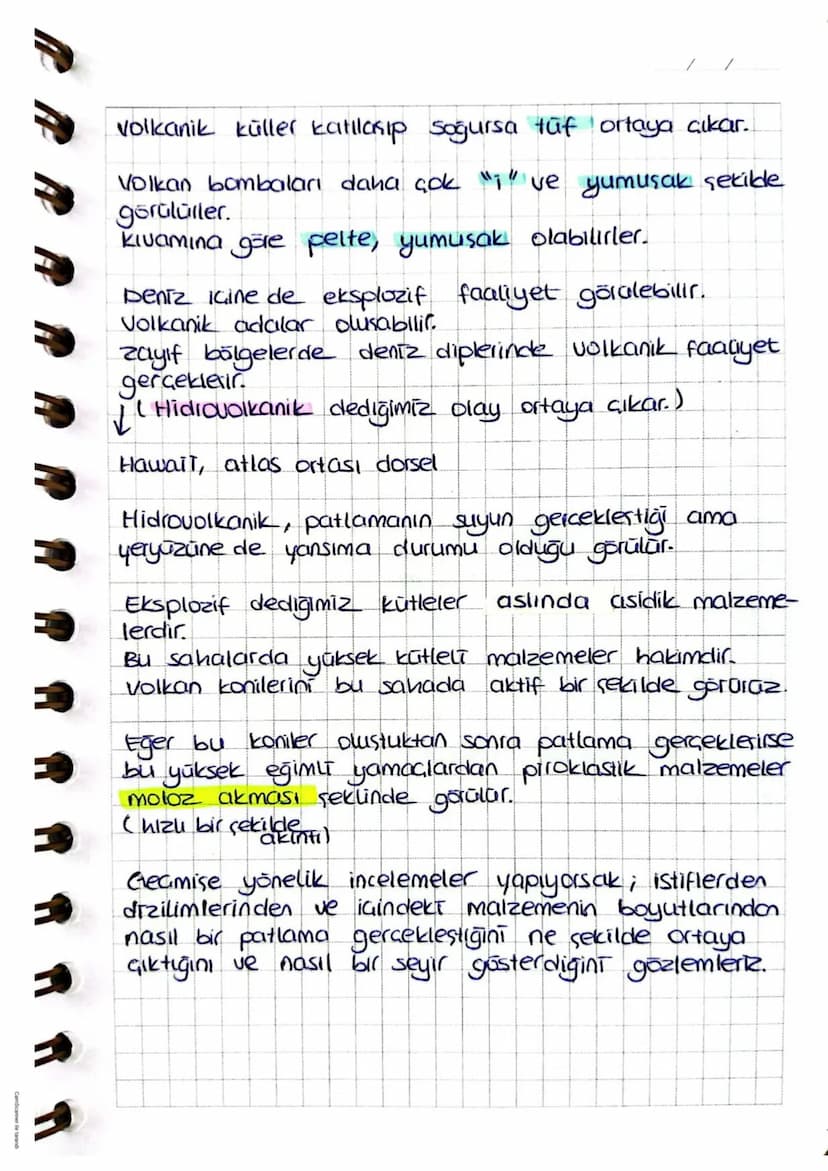 / /
Volkanik küller katılaşıp soğursa tüf ortaya çıkar.
Volkan bombaları daha çok "i" ve yumuşak şekilde
görülürler.
Kıvamına göre pelte, yumuşak olabilirler.
Deniz içine de eksplozif faaliyet görülebilir.
Volkanik adalar oluşabilir.
Zayıf bölgelerde deniz diplerinde volkanik faaliyet
gerçekleşir.
↓ ( Hidrovolkanik dediğimiz olay ortaya çıkar.)
Hawaii, atlas ortası dorsel
Hidrovolkanik, patlamanın suyun gerçekleştiği ama
yeryüzüne de yansıma durumu olduğu görülür.
Eksplozif dediğimiz kütleler aslında asidik malzeme-
lerdir.
Bu sahalarda yüksek kütleli malzemeler hakimdir.
Volkan konilerini bu sahada aktif bir şekilde görürüz.
Eğer bu koniler oluştuktan sonra patlama gerçekleşirse
bu yüksek eğimli yamaçlardan piroklastik malzemeler
moloz akması şeklinde görülür.
( hızlı bir şekilde
akıntı)
Geçmişe yönelik incelemeler yapıyorsak ; istiflerden
dizilimlerinden ve içindeki malzemenin boyutlarından
nasıl bir patlama gerçekleştiğini ne şekilde ortaya
çıktığını ve nasıl bir seyir gösterdiğini gözlemleriz.
CamScanner ile tarandı